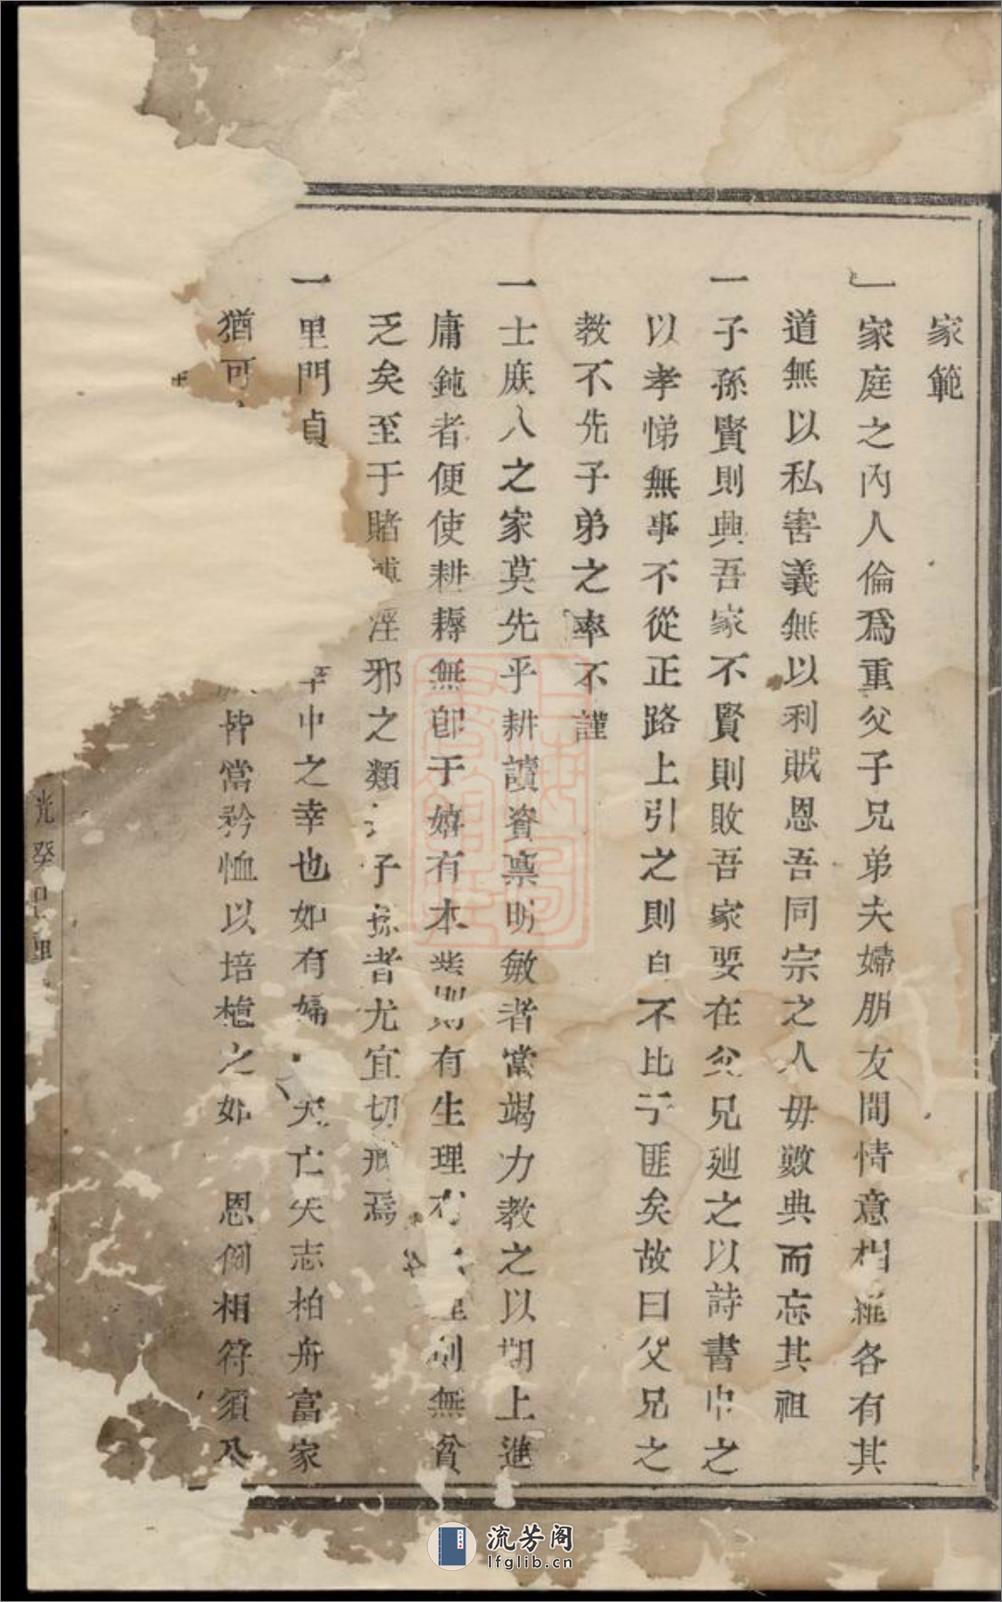 家範
一家庭之內人倫爲重父子兄弟夫婦朋友間情意相維各有其
道無以私害義無以利賊恩吾同宗之人毋斁典而忘其祖
一子孫賢則興吾家不賢則敗吾家要在父兄廸之以詩書申之
以孝悌無事不從正路上引之則自不比于匪矣故曰父兄之
教不先子弟之率不謹
一士庶人之家莫先乎耕讀資禀明敏者當竭力教之以期上進
庸鈍者便使耕耨無卽于嬉有本業則有生理有生理則無貧
乏矣至于賭博淫邪之類 子孫者尤宜切戒焉
一里門貞 中之幸也如有婦 夫亡矢志柏舟富家
猶可 皆當矜恤以培植之如 恩例相符須
光癸 理
流芳阁
lfglib.cn